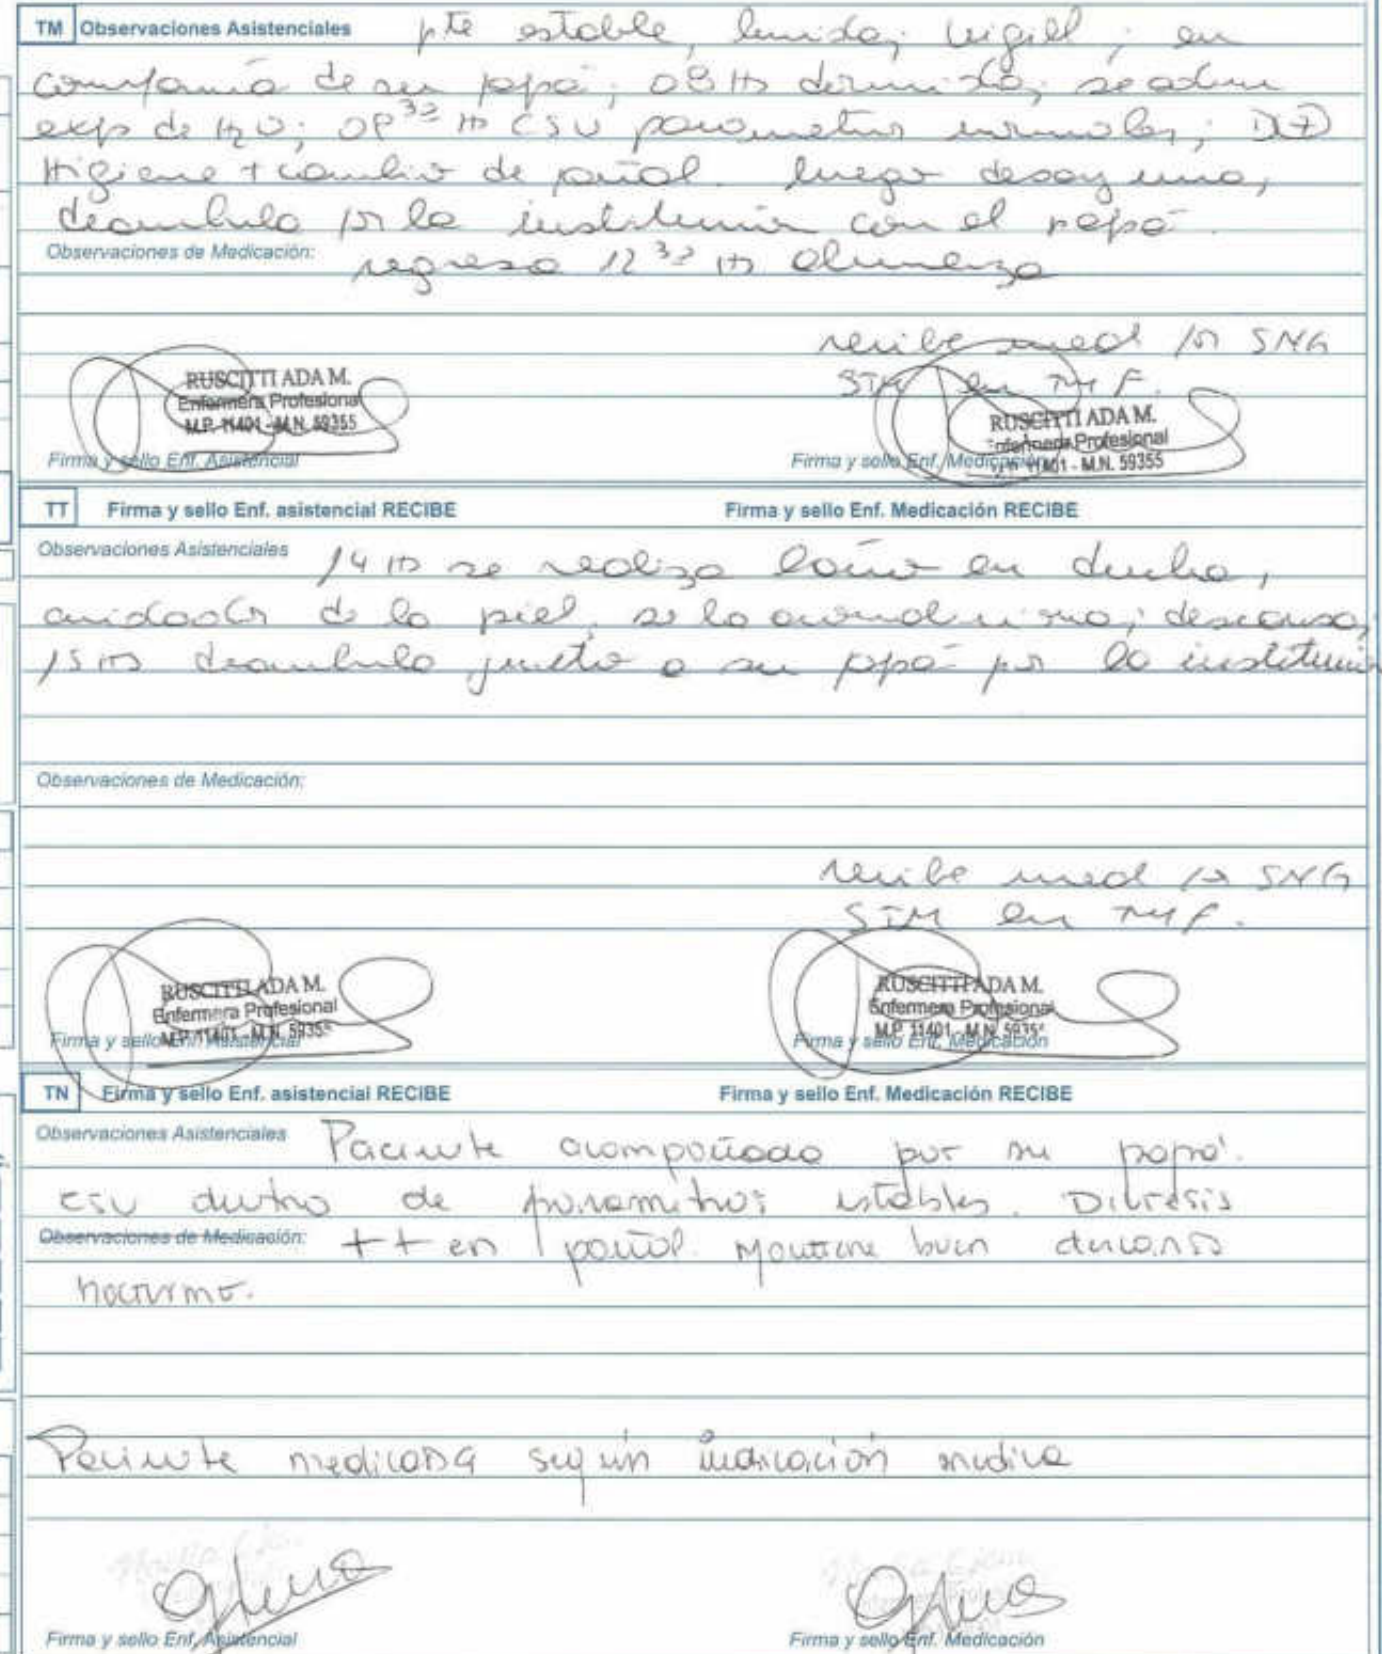 TM Observaciones Asistenciales pte estable, lucida, vigil; en
compañia de su papá; 08 Hs dormida, se adm
exp de H2O; 08 30 Hs CSV parametros normales; D(+)
Higiene + cambio de pañal. luego desayuna,
deambula por la institución con el papá.
Observaciones de Medicación: regresa 12 30 Hs Almuerza
recibe med por SNG
STM en TMF.
RUSCITTI ADA M.
Enfermera Profesional
M.P. 11401 - M.N. 59355
Firma y sello Enf. Asistencial
RUSCITTI ADA M.
Enfermera Profesional
M.P. 11401 - M.N. 59355
Firma y sello Enf. Medicación
TT Firma y sello Enf. asistencial RECIBE Firma y sello Enf. Medicación RECIBE
Observaciones Asistenciales 14 Hs se realiza baño en ducha,
cuidados de la piel, se la; descansa;
15 Hs deambula junto a su papá por la institución
Observaciones de Medicación:
recibe med por SNG
STM en TMF.
RUSCITTI ADA M.
Enfermera Profesional
M.P. 11401 - M.N. 59355
Firma y sello Enf. Asistencial
RUSCITTI ADA M.
Enfermera Profesional
M.P. 11401 - M.N. 5935
Firma y sello Enf. Medicación
TN Firma y sello Enf. asistencial RECIBE Firma y sello Enf. Medicación RECIBE
Observaciones Asistenciales Paciente acompañada por su papá.
CSV dentro de parametros estables. Diuresis
Observaciones de Medicación: ++ en pañal. Mantiene buen descanso
nocturno.
Paciente medicada según indicación medica
Firma y sello Enf. Asistencial Firma y sello Enf. Medicación